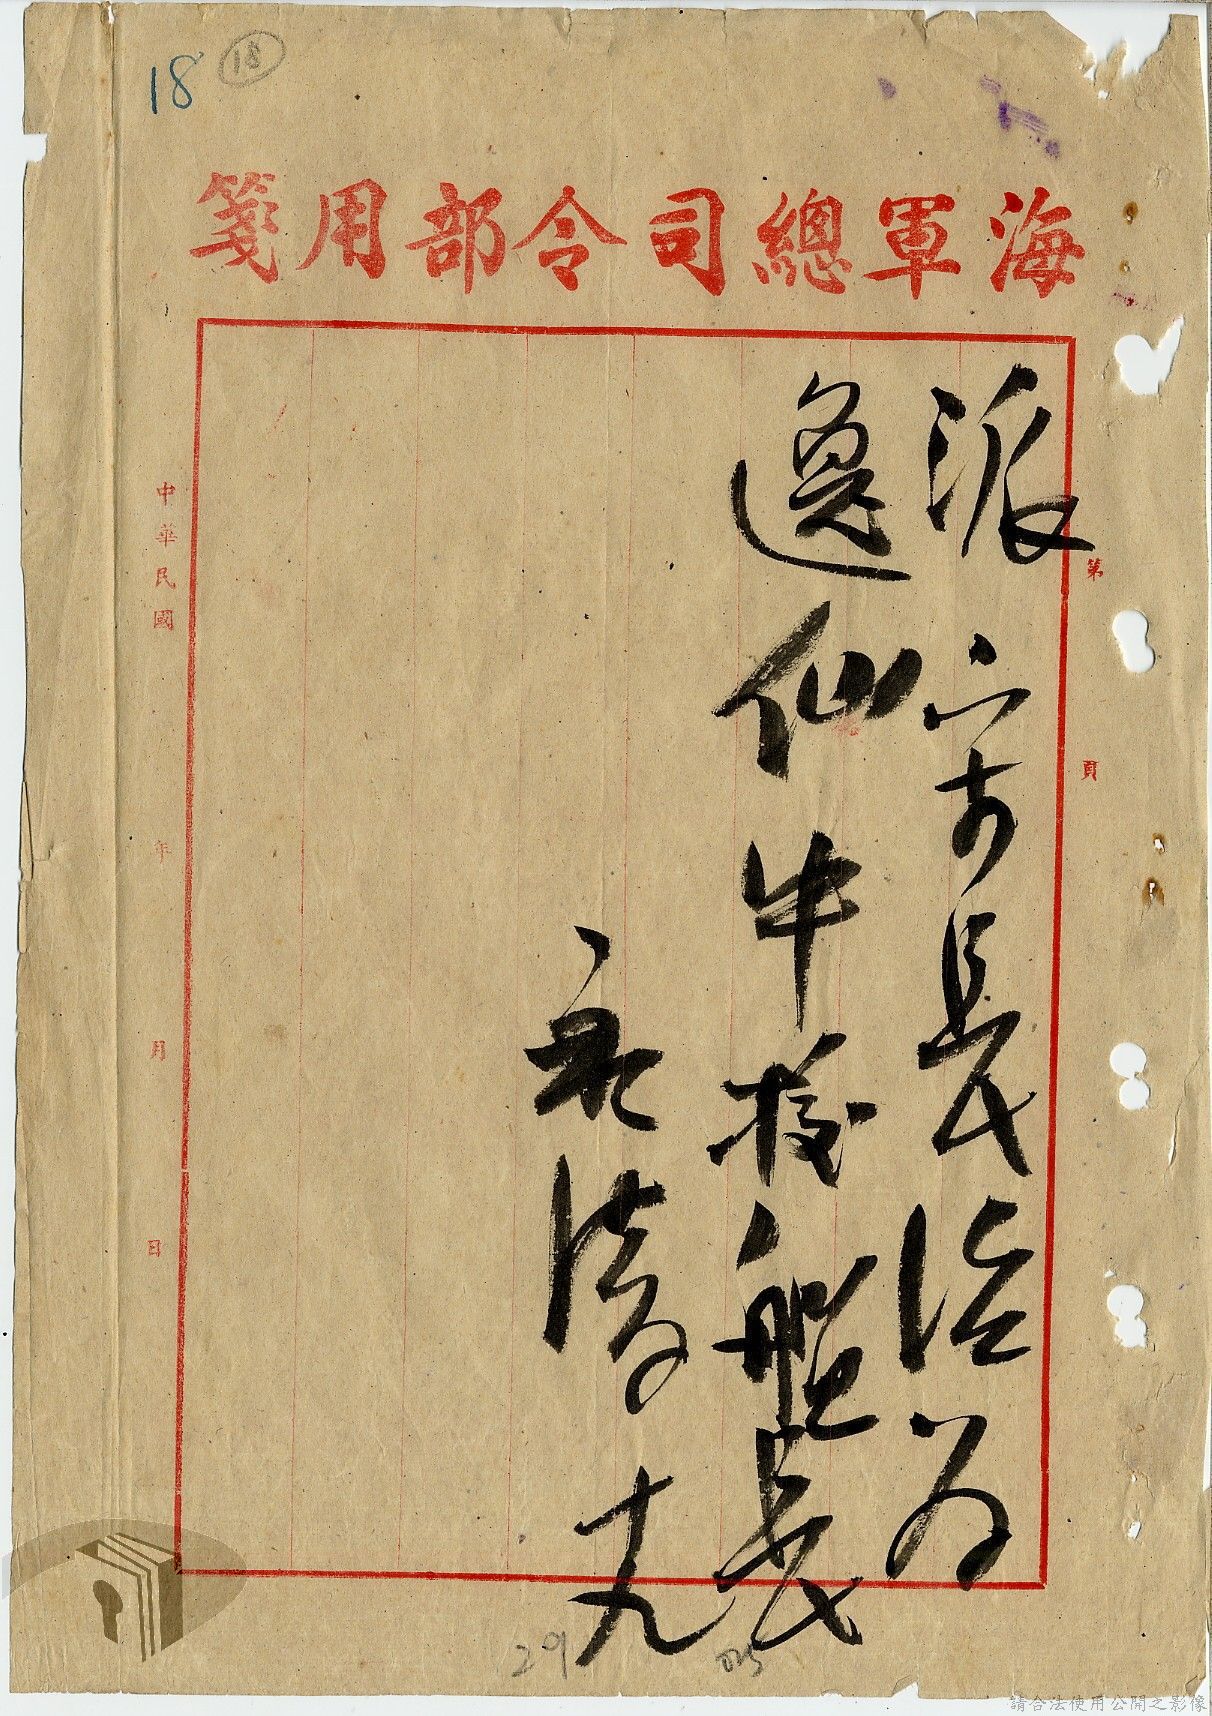 18 18
海軍總司令部用箋
第 頁
派 長 為
逸仙中校艦長
永清
中華民國 年 月 日
29 025
請合法使用公開之影像